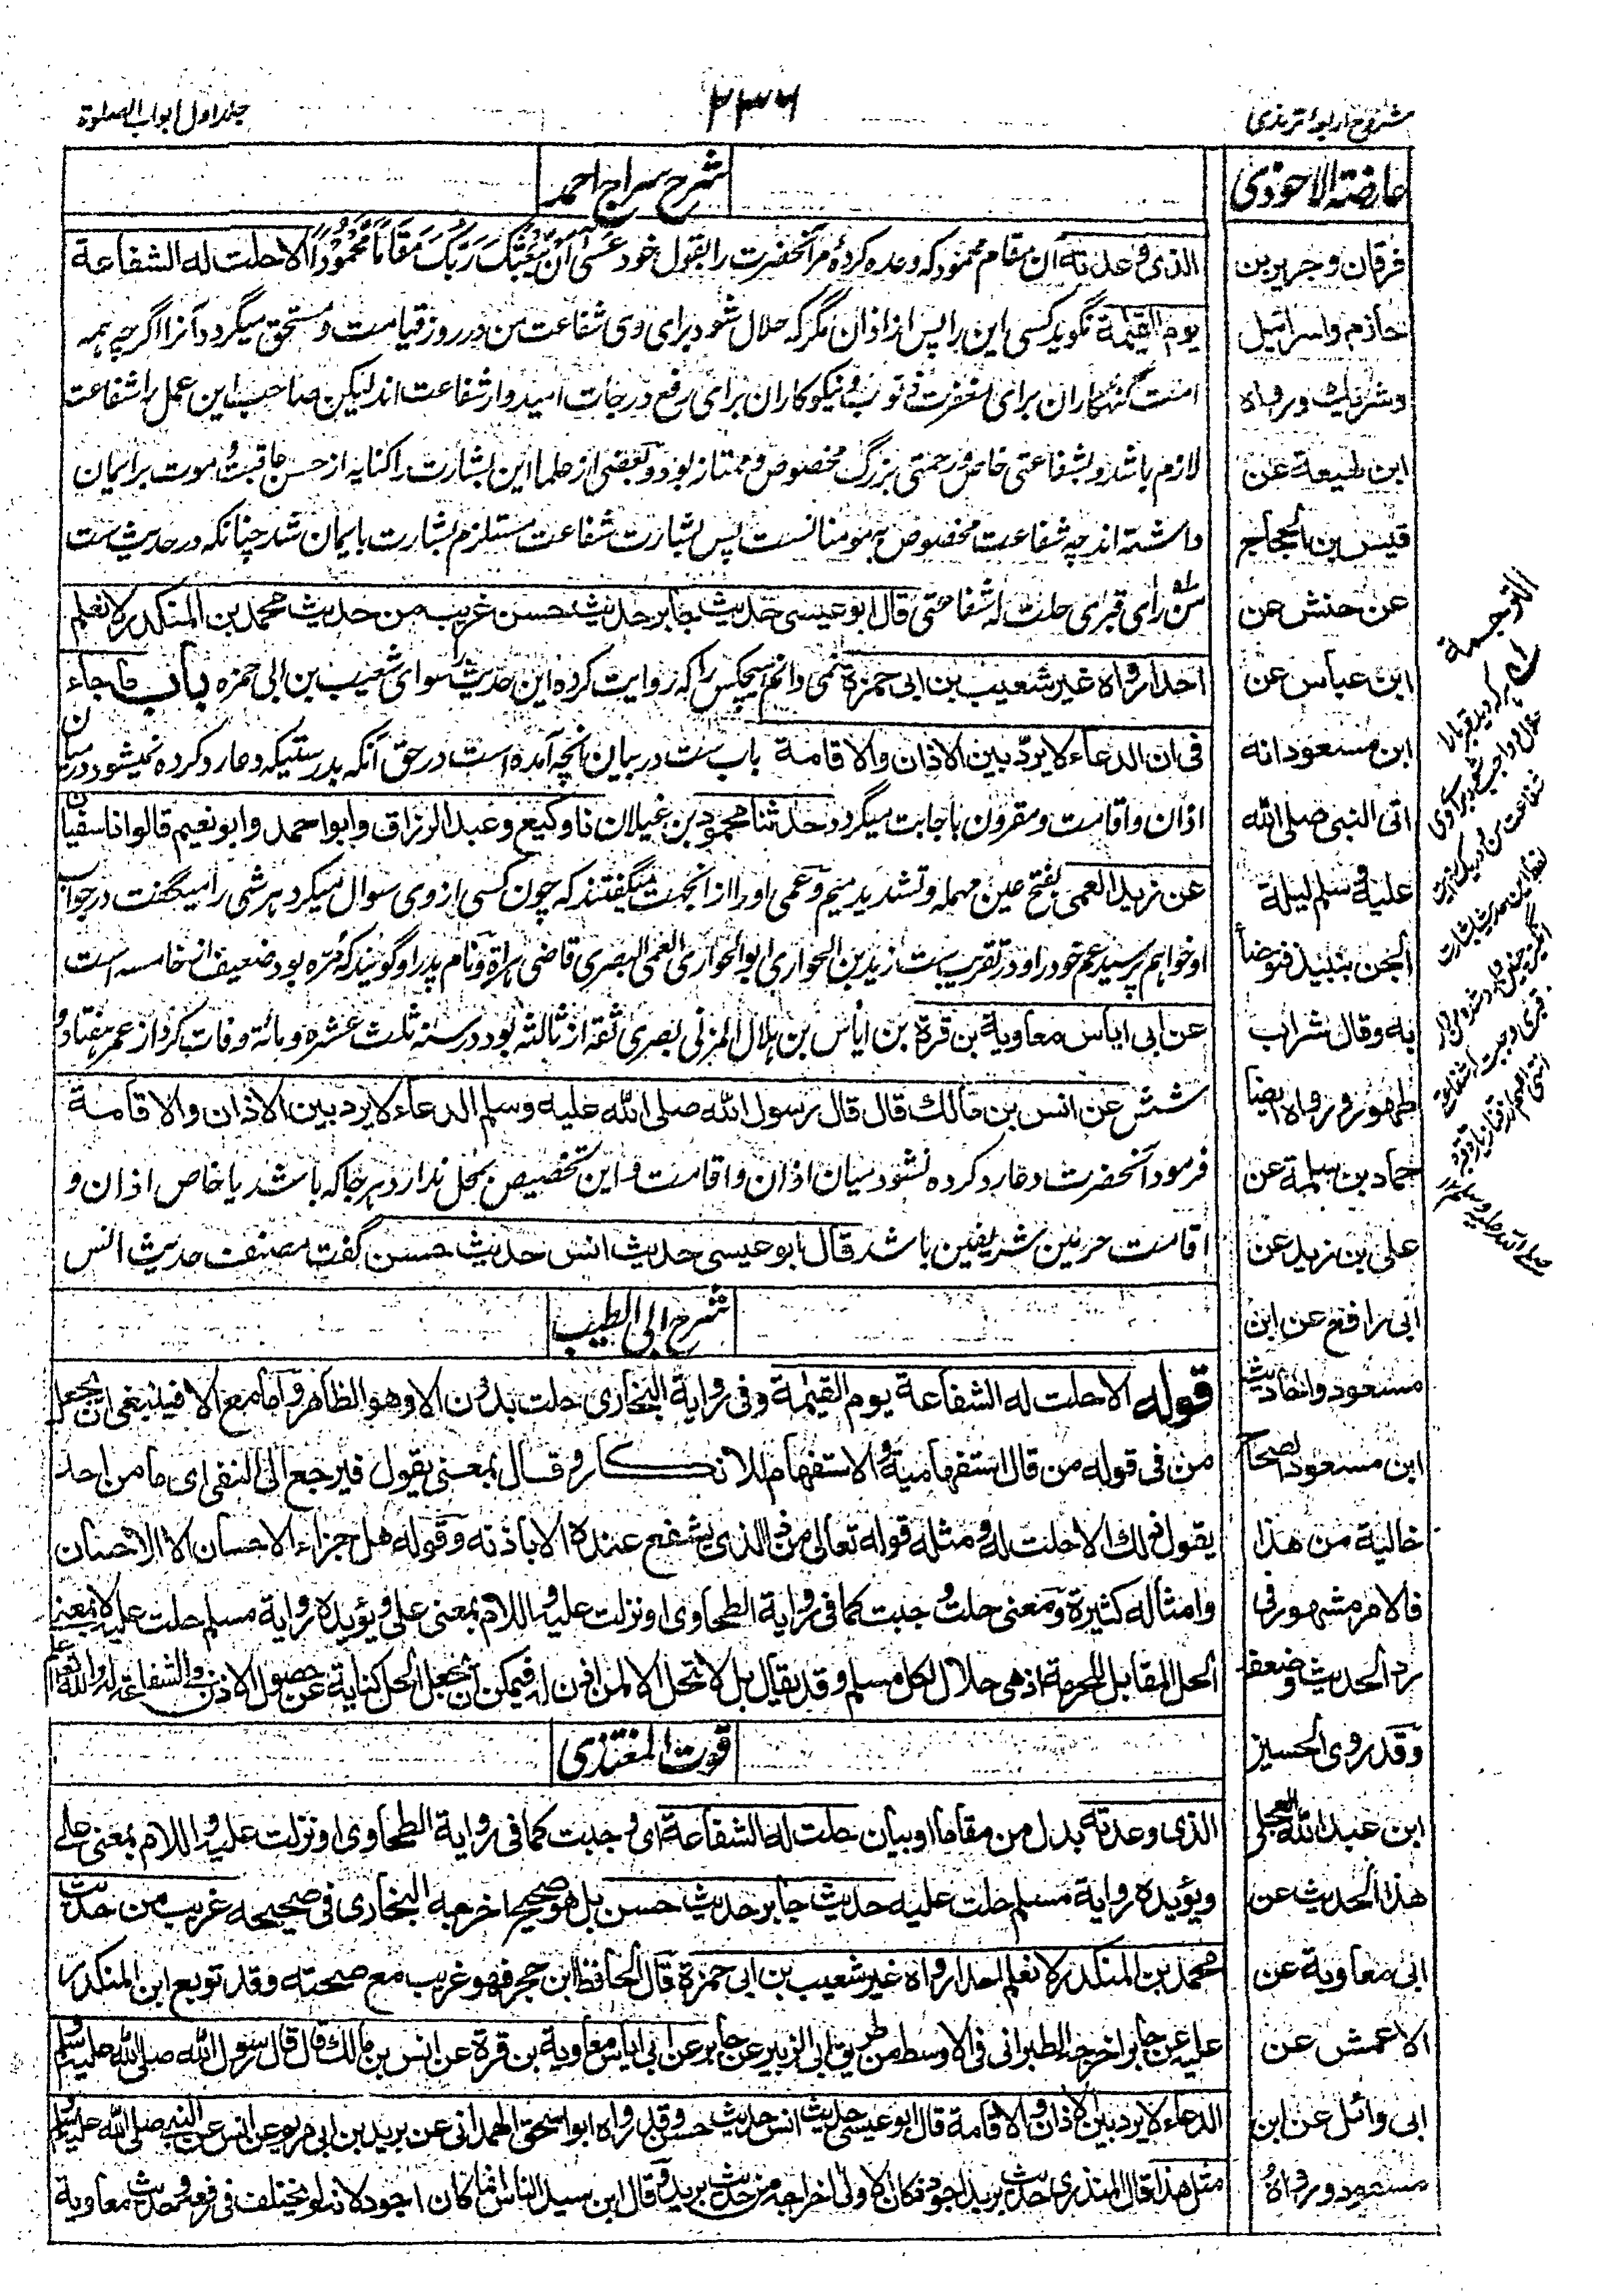 شروح اربعۂ ترمذی
۲۳۶
جلد اول ابواب الصلوة
شرح سراج احمد
الذی وعدته آن مقام محمود که وعده کردهٔ مر آنحضرت را بقول خود عَسَى أَنْ يَبْعَثَكَ رَبُّكَ مَقَامًا مَحْمُودًا الا حلت له الشفاعة
يوم القيٰمة نگوید کسی این را پس از اذان مگر که حلال شود برای وی شفاعت من در روز قیامت و مستحق میگردد آنرا اگرچه همه
امت گنهگاران برای مغفرت ذنوب و نیکوکاران برای رفع درجات امیدوار شفاعت اند لیکن صاحب این عمل را شفاعت
لازم باشد و بشفاعتی خاص و رحمتی بزرگ مخصوص و ممتاز بود و بعضی از علما این بشارت را کنایه از حسن عاقبت و موت بر ایمان
داشته اند چه شفاعت مخصوص بمومنانست پس بشارت شفاعت مستلزم بشارت بایمان شد چنانکه در حدیث ست
من رای قبری حلت له شفاعتی قال ابو عيسى حديث جابر حديث حسن غريب من حديث محمد بن المنكدر لا نعلم
احدا رواه غير شعيب بن ابی حمزة نمی دانم هیچکس را که روایت کرده این حدیث سوای شعیب بن ابی حمزه باب ما جاء
فی ان الدعاء لا يردّ بين الاذان والاقامة باب ست در بیان آنچه آمده است در حق آنکه بدرستیکه دعا رد کرده نمیشود درمیان
اذان و اقامت و مقرون باجابت میگردد حدثنا محمود بن غيلان نا وكيع وعبد الرزاق وابو احمد وابو نعيم قالوا نا سفيان
عن زيد العمی بفتح عین مهمله و تشدید میم و عمی او را از انجهت میگفتند که چون کسی از وی سوال میکرد هر شی را میگفت در جواب
او خواهم پرسید عم خود را و در تقریب ست زید بن الحواری ابو الحواری العمی البصری قاضی هراة و نام پدر او گویند که مره بود ضعیف از خامسه است
عن ابی اياس معاوية بن قرة بن ایاس بن هلال المزنی بصری ثقه از ثالثه بود در سنه ثلث عشره و مائة وفات کرد از عمر هفتاد و
شش عن انس بن مالك قال قال رسول الله صلى الله عليه وسلم الدعاء لا يرد بين الاذان والاقامة
فرمود آنحضرت دعا رد کرده نشود میان اذان و اقامت و این تخصیص بمحل ندارد هر جا که باشد یا خاص اذان و
اقامت حرمین شریفین باشد قال ابو عيسى حديث انس حديث حسن گفت مصنف حدیث انس
شرح ابی الطیب
قوله الا حلت له الشفاعة يوم القيٰمة وفی رواية البخاری حلت بدون الا وهو الظاهر واما مع الا فينبغی ان يجعل
من فی قوله من قال استفهامية والاستفهام للانكار وقال بمعنى يقول فيرجع الى النفی ای ما من احد
يقول ذلك الا حلت له ومثله قوله تعالى من ذا الذی يشفع عنده الا باذنه وقوله هل جزاء الاحسان الا الاحسان
وامثاله كثيرة ومعنى حلت وجبت كما فی رواية الطحاوی او نزلت عليه واللام بمعنى على ويؤيده رواية مسلم حلت عليه لا بمعنى
الحل المقابل للحرمة اذ هی حلال لكل مسلم وقد يقال بل لا تحل الا لمن اذن له فيمكن ان يجعل الحل كناية عن حصول الاذن فی الشفاعة له والله تعالى اعلم
قوت المغتذی
الذی وعدته بدل من مقاما او بيان حلت له الشفاعة ای وجبت كما فی رواية الطحاوی او نزلت عليه واللام بمعنى على
ويؤيده رواية مسلم حلت عليه حديث جابر حديث حسن بل هو صحيح اخرجه البخاری فی صحيحه غريب من حديث
محمد بن المنكدر لا نعلم احدا رواه غير شعيب بن ابی حمزة قال الحافظ ابن حجر فهو غريب مع صحته وقد توبع ابن المنكدر
عليه عن جابر اخرجه الطبرانی فی الاوسط من طريق ابی الزبير عن جابر عن ابی اياس معاوية بن قرة عن انس بن مالك قال قال رسول الله صلى الله عليه وسلم
الدعاء لا يرد بين الاذان والاقامة قال ابو عيسى حديث انس حديث حسن وقد رواه ابو اسحق الهمدانی عن بريد بن ابی مريم عن انس عن النبی صلى الله عليه وسلم
مثل هذا قال المنذری حديث بريد اجود فكان الاولى اخراجه من حديث بريد وقال ابن سيد الناس انما كان اجود لانه لم يختلف فی رفعه وحديث معاوية
عارضة الاحوذی
فرقان وجرير بن
حازم واسرائيل
وشريك ورواه
ابن لهيعة عن
قيس بن الحجاج
عن حنش عن
ابن عباس عن
ابن مسعود انه
اتى النبی صلى الله
عليه وسلم ليلة
الجن بنبيذ فتوضأ
به وقال شراب
طهور ورواه ايضا
حماد بن سلمة عن
علی بن زيد عن
ابی رافع عن ابن
مسعود واحاديث
ابن مسعود الصحاح
خالية من هذا
فالامر مشهور فی
رد الحديث وضعفه
وقد روى الحسين
ابن عبد الله العجلی
هذا الحديث عن
ابی معاوية عن
الاعمش عن
ابی وائل عن ابن
مسعود ورواه
الترجمة
ای هر که دید قبر مرا
حلال و واجب شد برای وی
شفاعت من